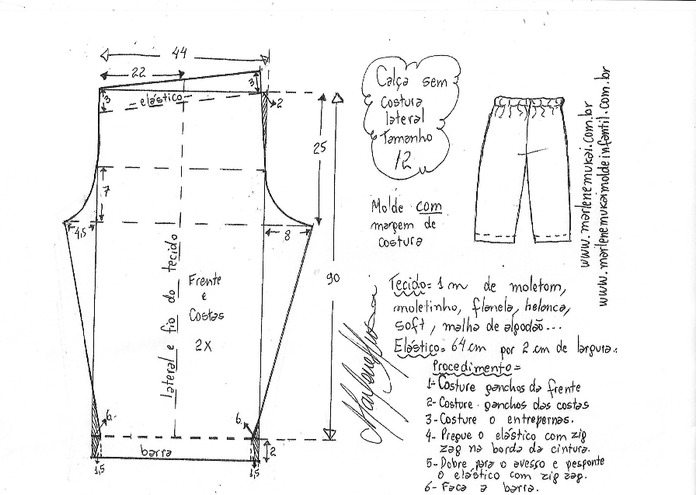 44
22
3
elástico
3
2
25
7
4,5
8
90
lateral e fio do tecido
Frente
e
Costas
2X
6
6
barra
2
1,5
1,5
Calça sem
Costura
lateral
Tamanho
12
Molde com
margem de
costura
www.marlenemukai.com.br
www.marlenemukaimoldeinfantil.com.br
Tecido= 1m de moletom,
moletinho, flanela, helanca,
soft, malha de algodão...
Elástico= 64cm por 2 cm de largura.
Procedimento=
1- Costure ganchos da frente
2- Costure ganchos das costas
3- Costure o entrepernas.
4- Pregue o elástico com zig
zag na borda da cintura.
5- Dobre para o avesso e pesponte
o elástico com zig zag.
6- Faca a barra.